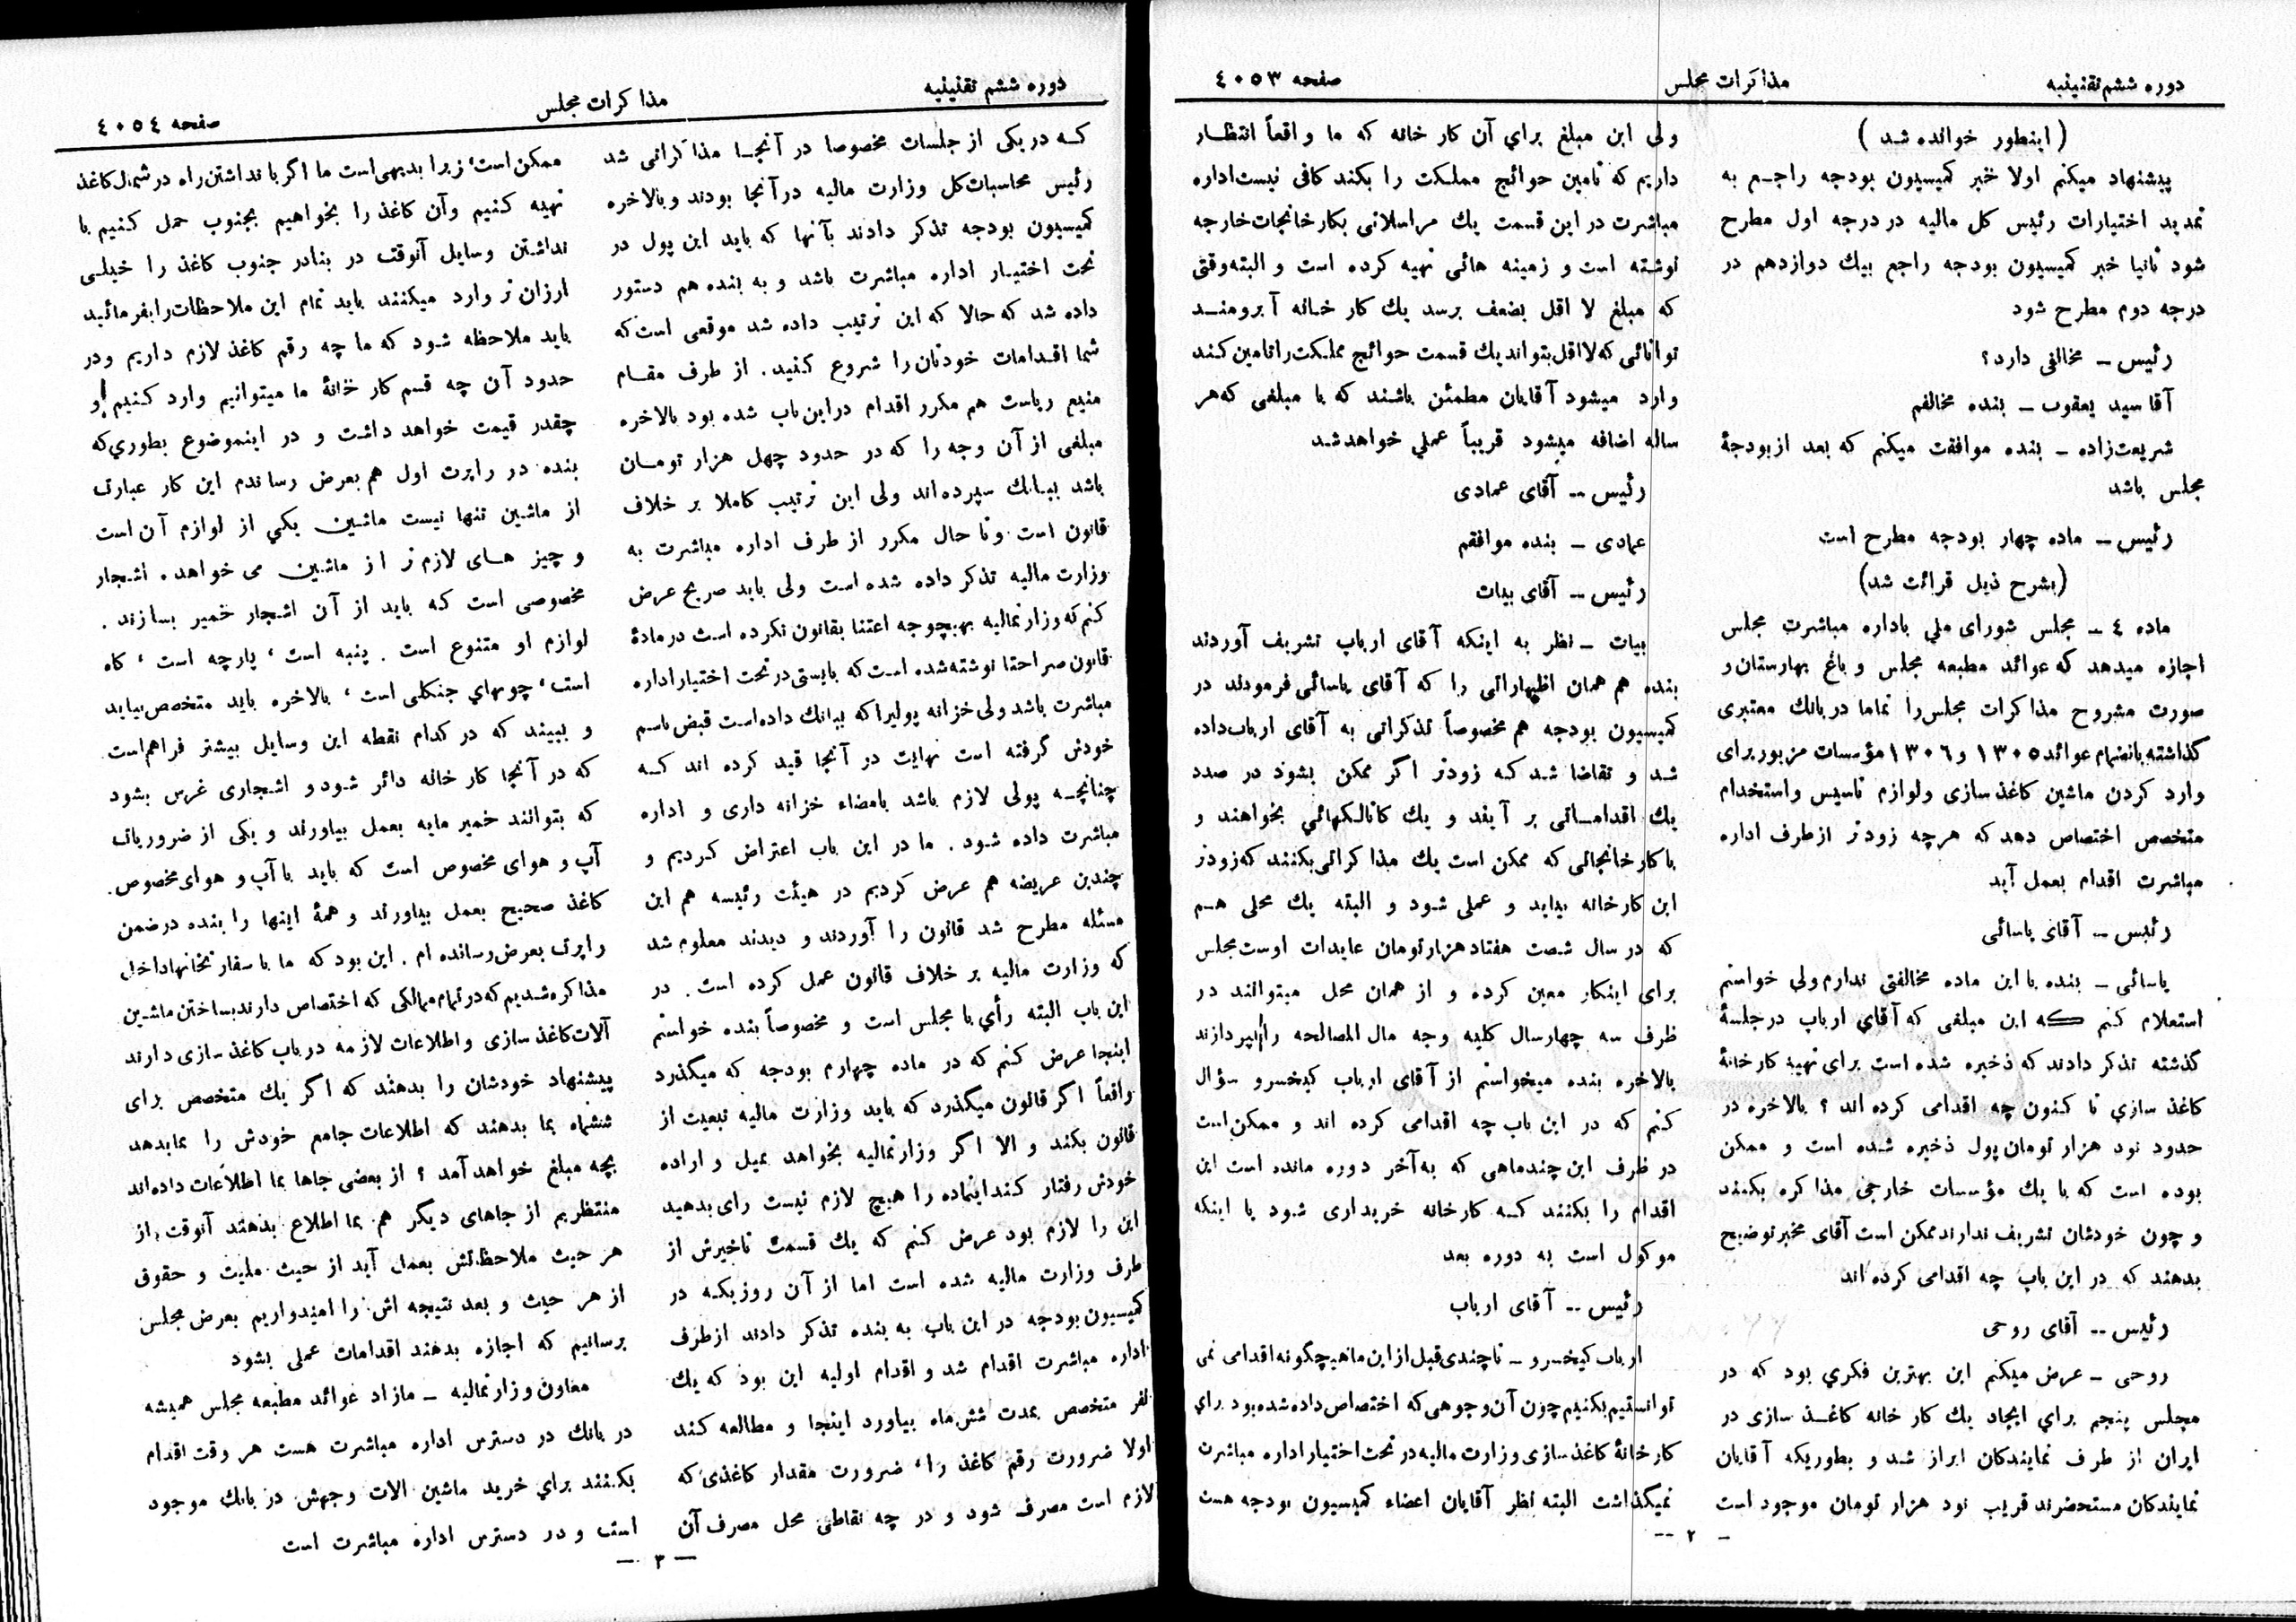 دوره ششم تقنینیه
مذاکرات مجلس
صفحه ٤٠٥٣
(اینطور خوانده شد)
پیشنهاد میکنم اولا خبر کمیسیون بودجه راجع به
تمدید اختیارات رئیس کل مالیه در درجه اول مطرح
شود ثانیا خبر کمیسیون بودجه راجع بیك دوازدهم در
درجه دوم مطرح شود
رئیس ــ مخالفی دارد؟
آقا سید یعقوب ــ بنده مخالفم
شریعت‌زاده ــ بنده موافقت میکنم که بعد از بودجهٔ
مجلس باشد
رئیس ــ ماده چهار بودجه مطرح است
(بشرح ذیل قرائت شد)
ماده ٤ ــ مجلس شورای ملی باداره مباشرت مجلس
اجازه میدهد که عوائد مطبعه مجلس و باغ بهارستان و
صورت مشروح مذاکرات مجلس را تماما در بانك معتبری
گذاشته بانضمام عوائد ١٣٠٥ و ١٣٠٦ مؤسسات مزبور برای
وارد کردن ماشین کاغذ سازی و لوازم تاسیس و استخدام
متخصص اختصاص دهد که هرچه زودتر از طرف اداره
مباشرت اقدام بعمل آید
رئیس ــ آقای یاسائی
یاسائی ــ بنده با این ماده مخالفتی ندارم ولی خواستم
استعلام کنم که این مبلغی که آقای ارباب در جلسهٔ
گذشته تذکر دادند که ذخیره شده است برای تهیهٔ کارخانهٔ
کاغذ سازی تا کنون چه اقدامی کرده اند ؟ بالاخره در
حدود نود هزار تومان پول ذخیره شده است و ممکن
بوده است که با یك مؤسسات خارجی مذاکره بکنند
و چون خودشان تشریف ندارند ممکن است آقای مخبر توضیح
بدهند که در این باب چه اقدامی کرده اند
رئیس ــ آقای روحی
روحی ــ عرض میکنم این بهترین فکری بود که در
مجلس پنجم برای ایجاد یك کار خانه کاغذ سازی در
ایران از طرف نمایندکان ابراز شد و بطوریکه آقایان
نمایندکان مستحضرند قریب نود هزار تومان موجود است
ولی این مبلغ برای آن کار خانه که ما واقعاً انتظار
داریم که تامین حوائج مملکت را بکند کافی نیست اداره
مباشرت در این قسمت یك مراسلاتی بکارخانجات خارجه
نوشته است و زمینه هائی تهیه کرده است و البته وقتی
که مبلغ لا اقل بضعف برسد یك کار خانه آبرومند
توانائی که لااقل بتواند یك قسمت حوائج مملکت را تامین کند
وارد میشود آقایان مطمئن باشند که با مبلغی که هر
ساله اضافه میشود قریباً عملی خواهد شد
رئیس ــ آقای عمادی
عمادی ــ بنده موافقم
رئیس ــ آقای بیات
بیات ــ نظر به اینکه آقای ارباب تشریف آوردند
بنده هم همان اظهاراتی را که آقای یاسائی فرمودند در
کمیسیون بودجه هم مخصوصاً تذکراتی به آقای ارباب داده
شد و تقاضا شد که زودتر اگر ممکن بشود در صدد
یك اقداماتی بر آیند و یك کاتالکهائی بخواهند و
با کارخانجاتی که ممکن است یك مذاکراتی بکنند که زودتر
این کارخانه بیاید و عملی شود و البته یك محلی هم
که در سال شصت هفتاد هزار تومان عایدات اوست مجلس
برای اینکار معین کرده و از همان محل میتوانند در
ظرف سه چهارسال کلیه وجه مال المصالحه را بپردازند
بالاخره بنده میخواستم از آقای ارباب کیخسرو سؤال
کنم که در این باب چه اقدامی کرده اند و ممکن است
در ظرف این چندماهی که به آخر دوره مانده است این
اقدام را بکنند که کارخانه خریداری شود یا اینکه
موکول است به دوره بعد
رئیس ــ آقای ارباب
ارباب کیخسرو ــ تا چندی قبل از این ما هیچگونه اقدامی نمی
توانستیم بکنیم چون آن وجوهی که اختصاص داده شده بود برای
کارخانهٔ کاغذ سازی وزارت مالیه در تحت اختیار اداره مباشرت
نمیگذاشت البته نظر آقایان اعضاء کمیسیون بودجه هست
ــ ٢ ــ
دوره ششم تقنینیه
مذاکرات مجلس
صفحه ٤٠٥٤
که در یکی از جلسات مخصوصا در آنجا مذاکراتی شد
رئیس محاسبات کل وزارت مالیه در آنجا بودند و بالاخره
کمیسیون بودجه تذکر دادند بآنها که باید این پول در
تحت اختیار اداره مباشرت باشد و به بنده هم دستور
داده شد که حالا که این ترتیب داده شد موقعی است که
شما اقدامات خودتان را شروع کنید. از طرف مقام
منیع ریاست هم مکرر اقدام در این باب شده بود بالاخره
مبلغی از آن وجه را که در حدود چهل هزار تومان
باشد ببانك سپرده‌اند ولی این ترتیب کاملا بر خلاف
قانون است و تا حال مکرر از طرف اداره مباشرت به
وزارت مالیه تذکر داده شده است ولی باید صریح عرض
کنم که وزارتمالیه بهیچوجه اعتنا بقانون نکرده است در مادهٔ
قانون صراحتا نوشته شده است که بایستی در تحت اختیار اداره
مباشرت باشد ولی خزانه پولیرا که ببانك داده است قبض باسم
خودش گرفته است نهایت در آنجا قید کرده اند که
چنانچه پولی لازم باشد بامضاء خزانه داری و اداره
مباشرت داده شود . ما در این باب اعتراض کردیم و
چندین عریضه هم عرض کردیم در هیئت رئیسه هم این
مسئله مطرح شد قانون را آوردند و دیدند معلوم شد
که وزارت مالیه بر خلاف قانون عمل کرده است . در
این باب البته رأی با مجلس است و مخصوصاً بنده خواستم
اینجا عرض کنم که در ماده چهارم بودجه که میگذرد
واقعاً اگر قانون میگذرد که باید وزارت مالیه تبعیت از
قانون بکند و الا اگر وزارتمالیه بخواهد بمیل و اراده
خودش رفتار کند اینماده را هیچ لازم نیست رای بدهید
این را لازم بود عرض کنم که یك قسمت تاخیرش از
طرف وزارت مالیه شده است اما از آن روزیکه در
کمیسیون بودجه در این باب به بنده تذکر دادند از طرف
اداره مباشرت اقدام شد و اقدام اولیه این بود که یك
نفر متخصص بمدت شش ماه بیاورد اینجا و مطالعه کند
اولا ضرورت رقم کاغذ را ، ضرورت مقدار کاغذی که
لازم است مصرف شود و در چه نقاطی محل مصرف آن
ممکن است ، زیرا بدیهی است ما اگر با نداشتن راه در شمال کاغذ
تهیه کنیم و آن کاغذ را بخواهیم بجنوب حمل کنیم با
نداشتن وسایل آنوقت در بنادر جنوب کاغذ را خیلی
ارزان تر وارد میکنند باید تمام این ملاحظات را بفرمائید
باید ملاحظه شود که ما چه رقم کاغذ لازم داریم و در
حدود آن چه قسم کار خانهٔ ما میتوانیم وارد کنیم و
چقدر قیمت خواهد داشت و در اینموضوع بطوری که
بنده در راپرت اول هم بعرض رساندم این کار عبارت
از ماشین تنها نیست ماشین یکی از لوازم آن است
و چیز های لازم تر از ماشین می خواهد . اشجار
مخصوصی است که باید از آن اشجار خمیر بسازند .
لوازم او متنوع است . پنبه است ، پارچه است ، کاه
است ، چوبهای جنگلی است ، بالاخره باید متخصص بیاید
و ببیند که در کدام نقطه این وسایل بیشتر فراهم است
که در آنجا کار خانه دائر شود و اشجاری غرس بشود
که بتوانند خمیر مایه بعمل بیاورند و یکی از ضروریات
آب و هوای مخصوص است که باید با آب و هوای مخصوص.
کاغذ صحیح بعمل بیاورند و همهٔ اینها را بنده در ضمن
راپرت بعرض رسانده ام . این بود که ما با سفارتخانها داخل
مذاکره شدیم که در تمام ممالکی که اختصاص دارند بساختن ماشین
آلات کاغذ سازی و اطلاعات لازمه در باب کاغذ سازی دارند
پیشنهاد خودشان را بدهند که اگر یك متخصص برای
ششماه بما بدهند که اطلاعات جامع خودش را بما بدهد
بچه مبلغ خواهد آمد ؟ از بعضی جاها بما اطلاعات داده‌اند
منتظریم از جاهای دیگر هم بما اطلاع بدهند آنوقت از
هر حیث ملاحظاتش بعمل آید از حیث ملیت و حقوق
از هر حیث و بعد نتیجه اش را امیدواریم بعرض مجلس
برسانیم که اجازه بدهند اقدامات عملی بشود
معاون وزارتمالیه ــ مازاد عوائد مطبعه مجلس همیشه
در بانك در دسترس اداره مباشرت هست هر وقت اقدام
بکنند برای خرید ماشین الات وجهش در بانك موجود
است و در دسترس اداره مباشرت است
ــ ٣ ــ